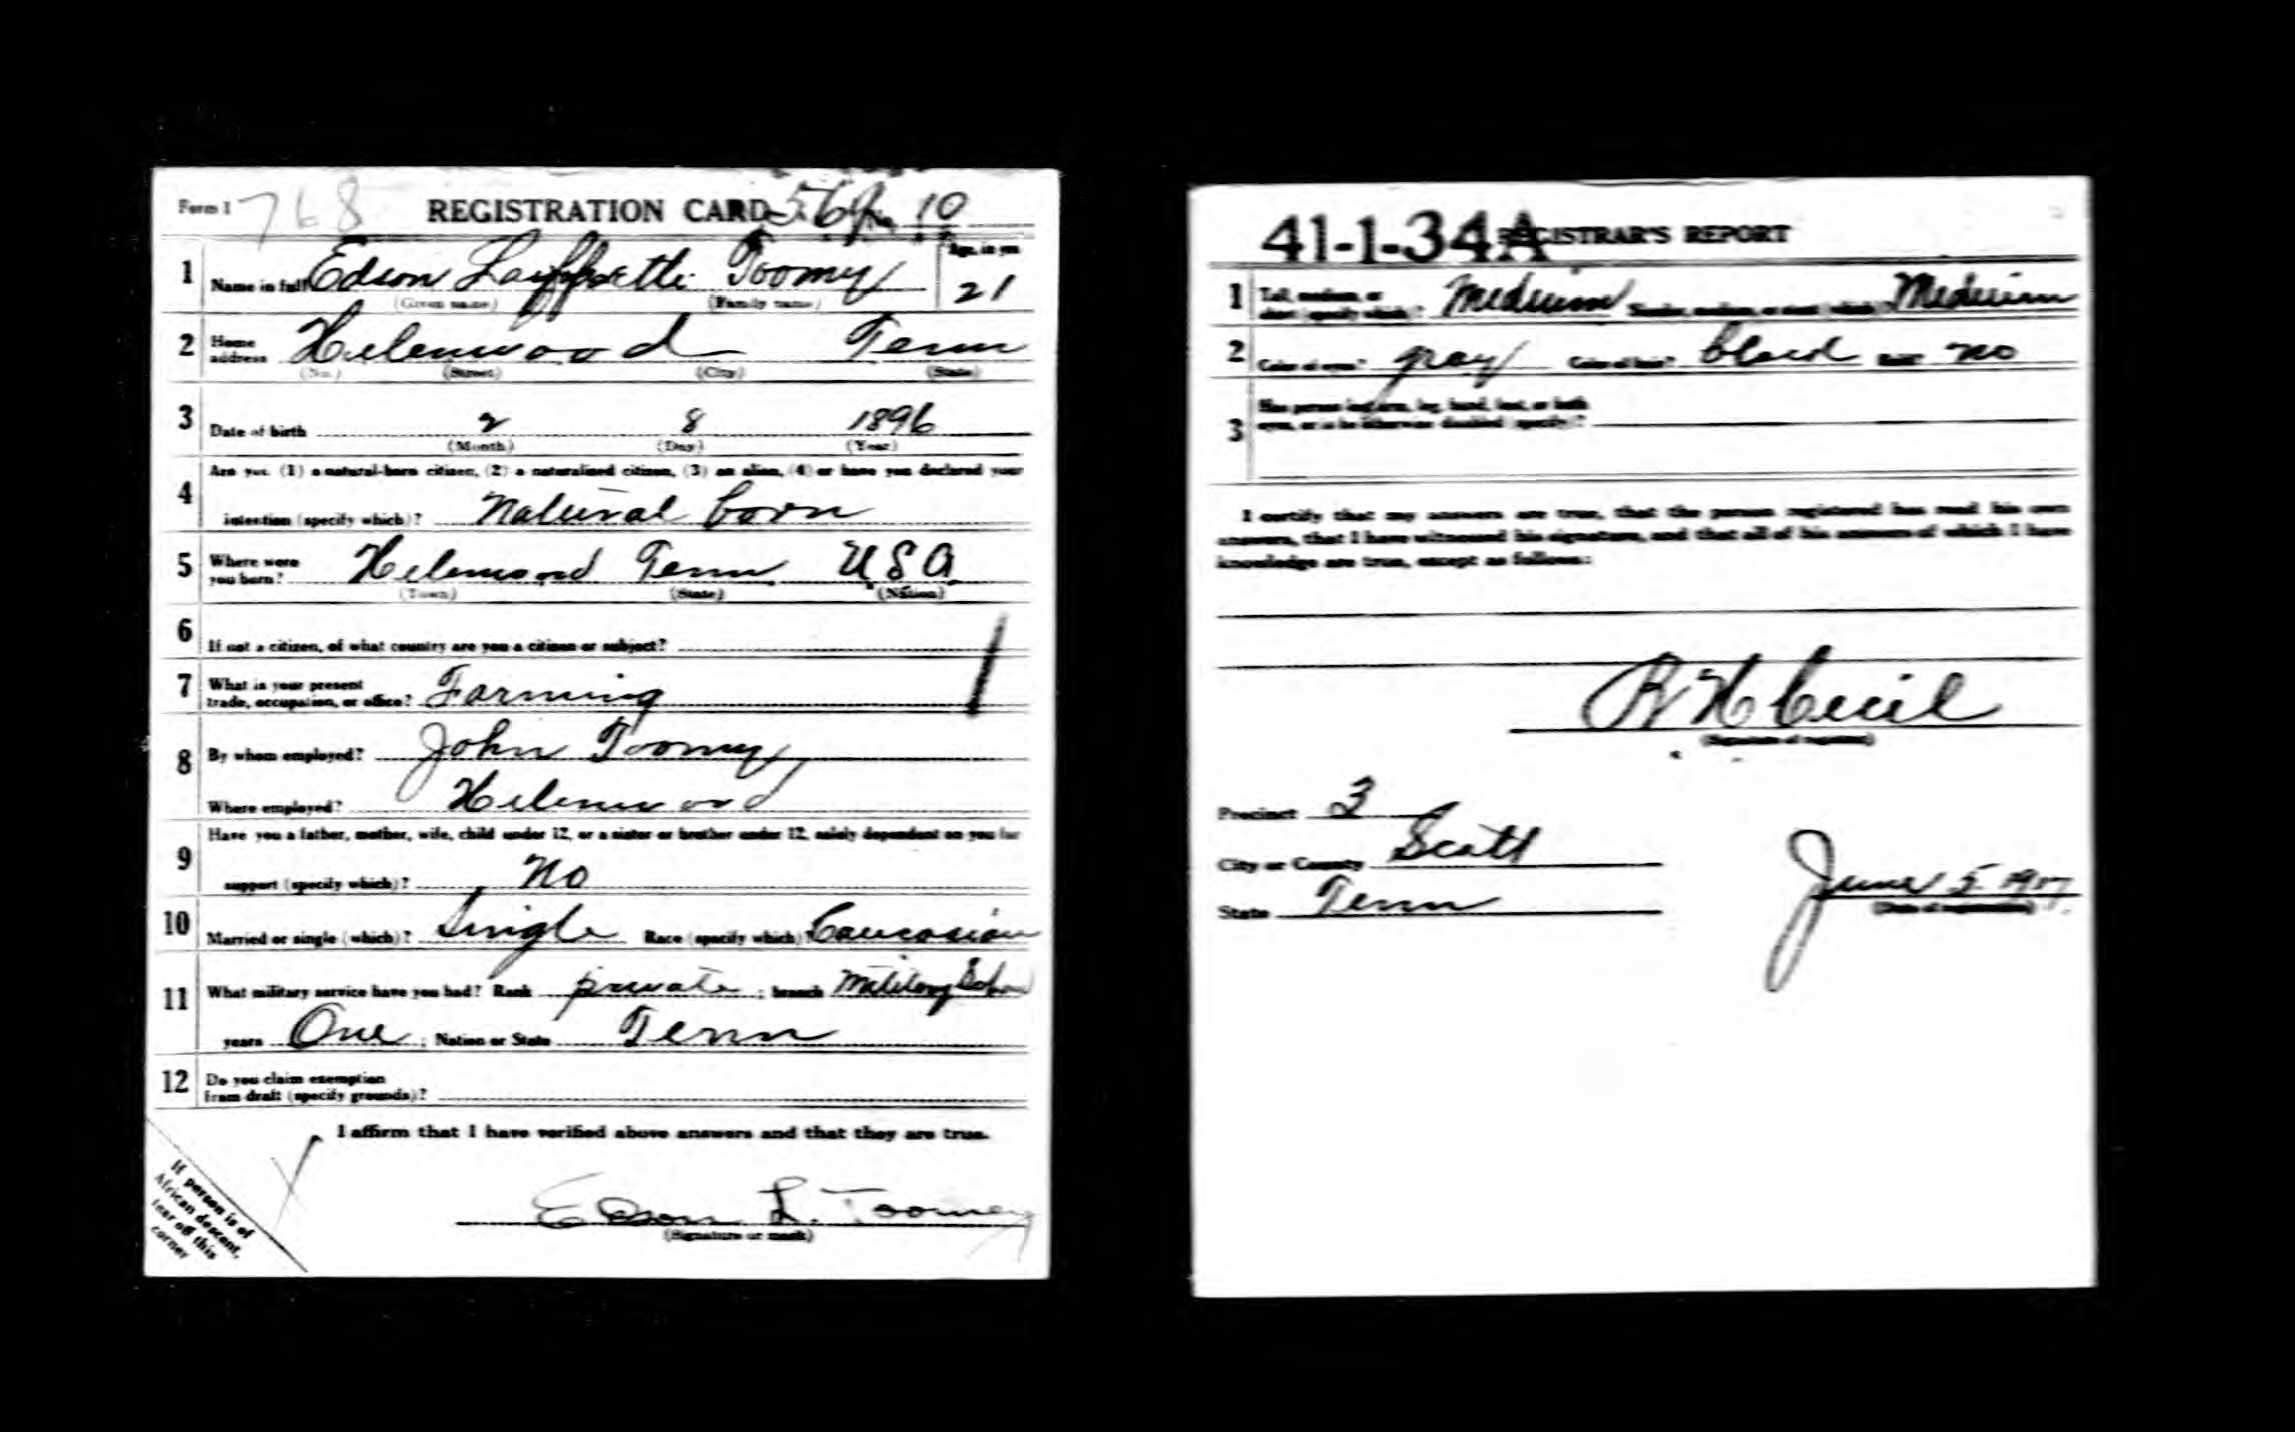 Form 1 768 REGISTRATION CARD 569 No. 10
1 Name in full Edson Laffette Toomy Age, in yrs 21
(Given name) (Family name)
2 Home address Helenwood Tenn
(No.) (Street) (City) (State)
3 Date of birth 2 8 1896
(Month) (Day) (Year)
4 Are you (1) a natural-born citizen, (2) a naturalized citizen, (3) an alien, (4) or have you declared your
intention (specify which)? Natural born
5 Where were you born? Helenwood Tenn USA
(Town) (State) (Nation)
6 If not a citizen, of what country are you a citizen or subject?
7 What is your present trade, occupation, or office? Farming
8 By whom employed? John Toomy
Where employed? Helenwood
9 Have you a father, mother, wife, child under 12, or a sister or brother under 12, solely dependent on you for
support (specify which)? No
10 Married or single (which)? Single Race (specify which)? Caucasian
11 What military service have you had? Rank private ; branch Military
years One ; Nation or State Tenn
12 Do you claim exemption
from draft (specify grounds)?
I affirm that I have verified above answers and that they are true.
Edson L. Toomey
(Signature or mark)
If person is of
African descent,
tear off this
corner
41-1-34A REGISTRAR'S REPORT
1 Tall, medium, or short (specify which)? Medium Slender, medium, or stout (which)? Medium
2 Color of eyes? gray Color of hair? Bald? No
3 Has person lost arm, leg, hand, foot, or both
eyes, or is he otherwise disabled (specify)?
I certify that my answers are true, that the person registered has read his own
answers, that I have witnessed his signature, and that all of his answers of which I have
knowledge are true, except as follows:
R H Cecil
(Signature of registrar)
Precinct 3
City or County Scott
State Tenn
June 5 1917
(Date of registration)